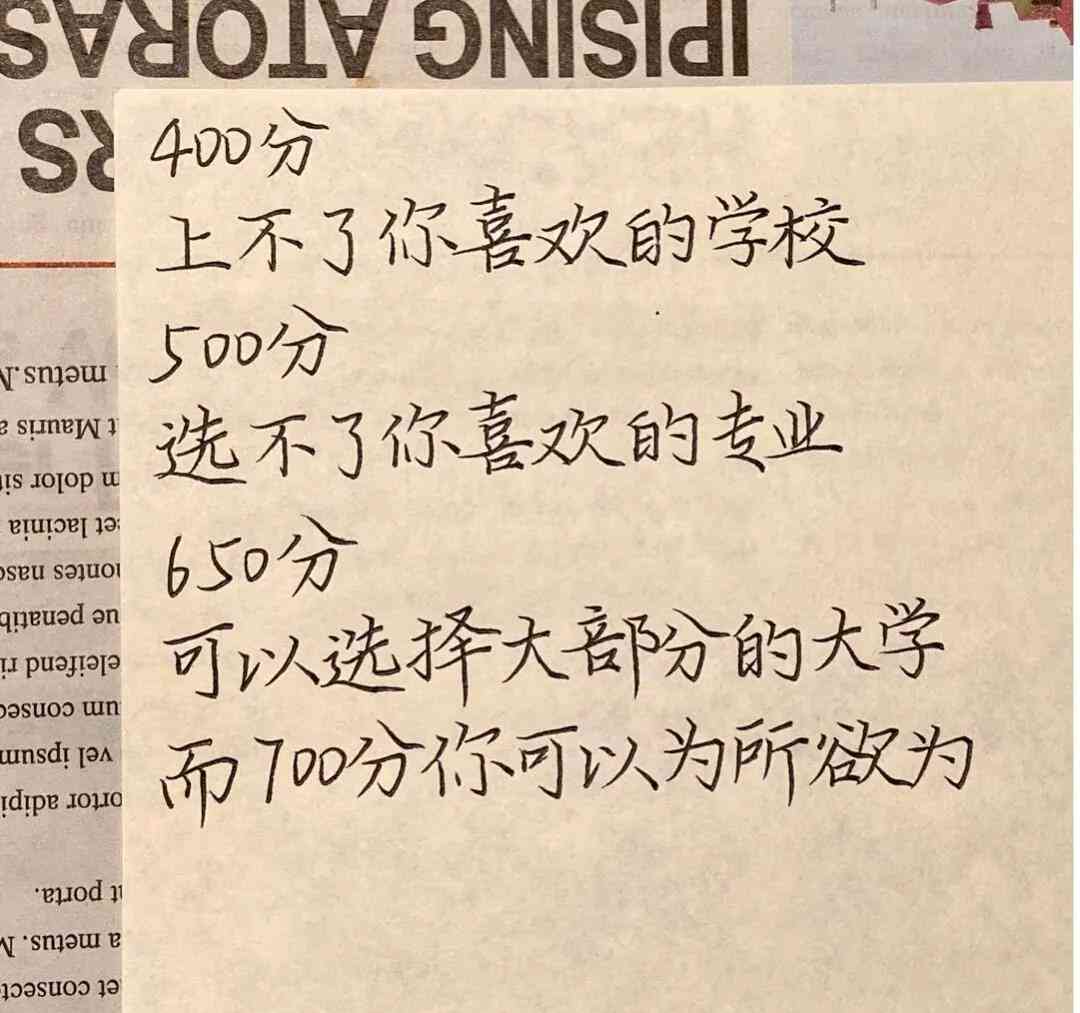 IPISING ATORAS
RS
400分
上不了你喜欢的学校
500分
选不了你喜欢的专业
650分
可以选择大部分的大学
而700分你可以为所欲为
metus.
Mauris a
dolor sit
lacinia
penatib
eleifend
consec
vel ipsum
adipi
porta.
a metus.
et consect